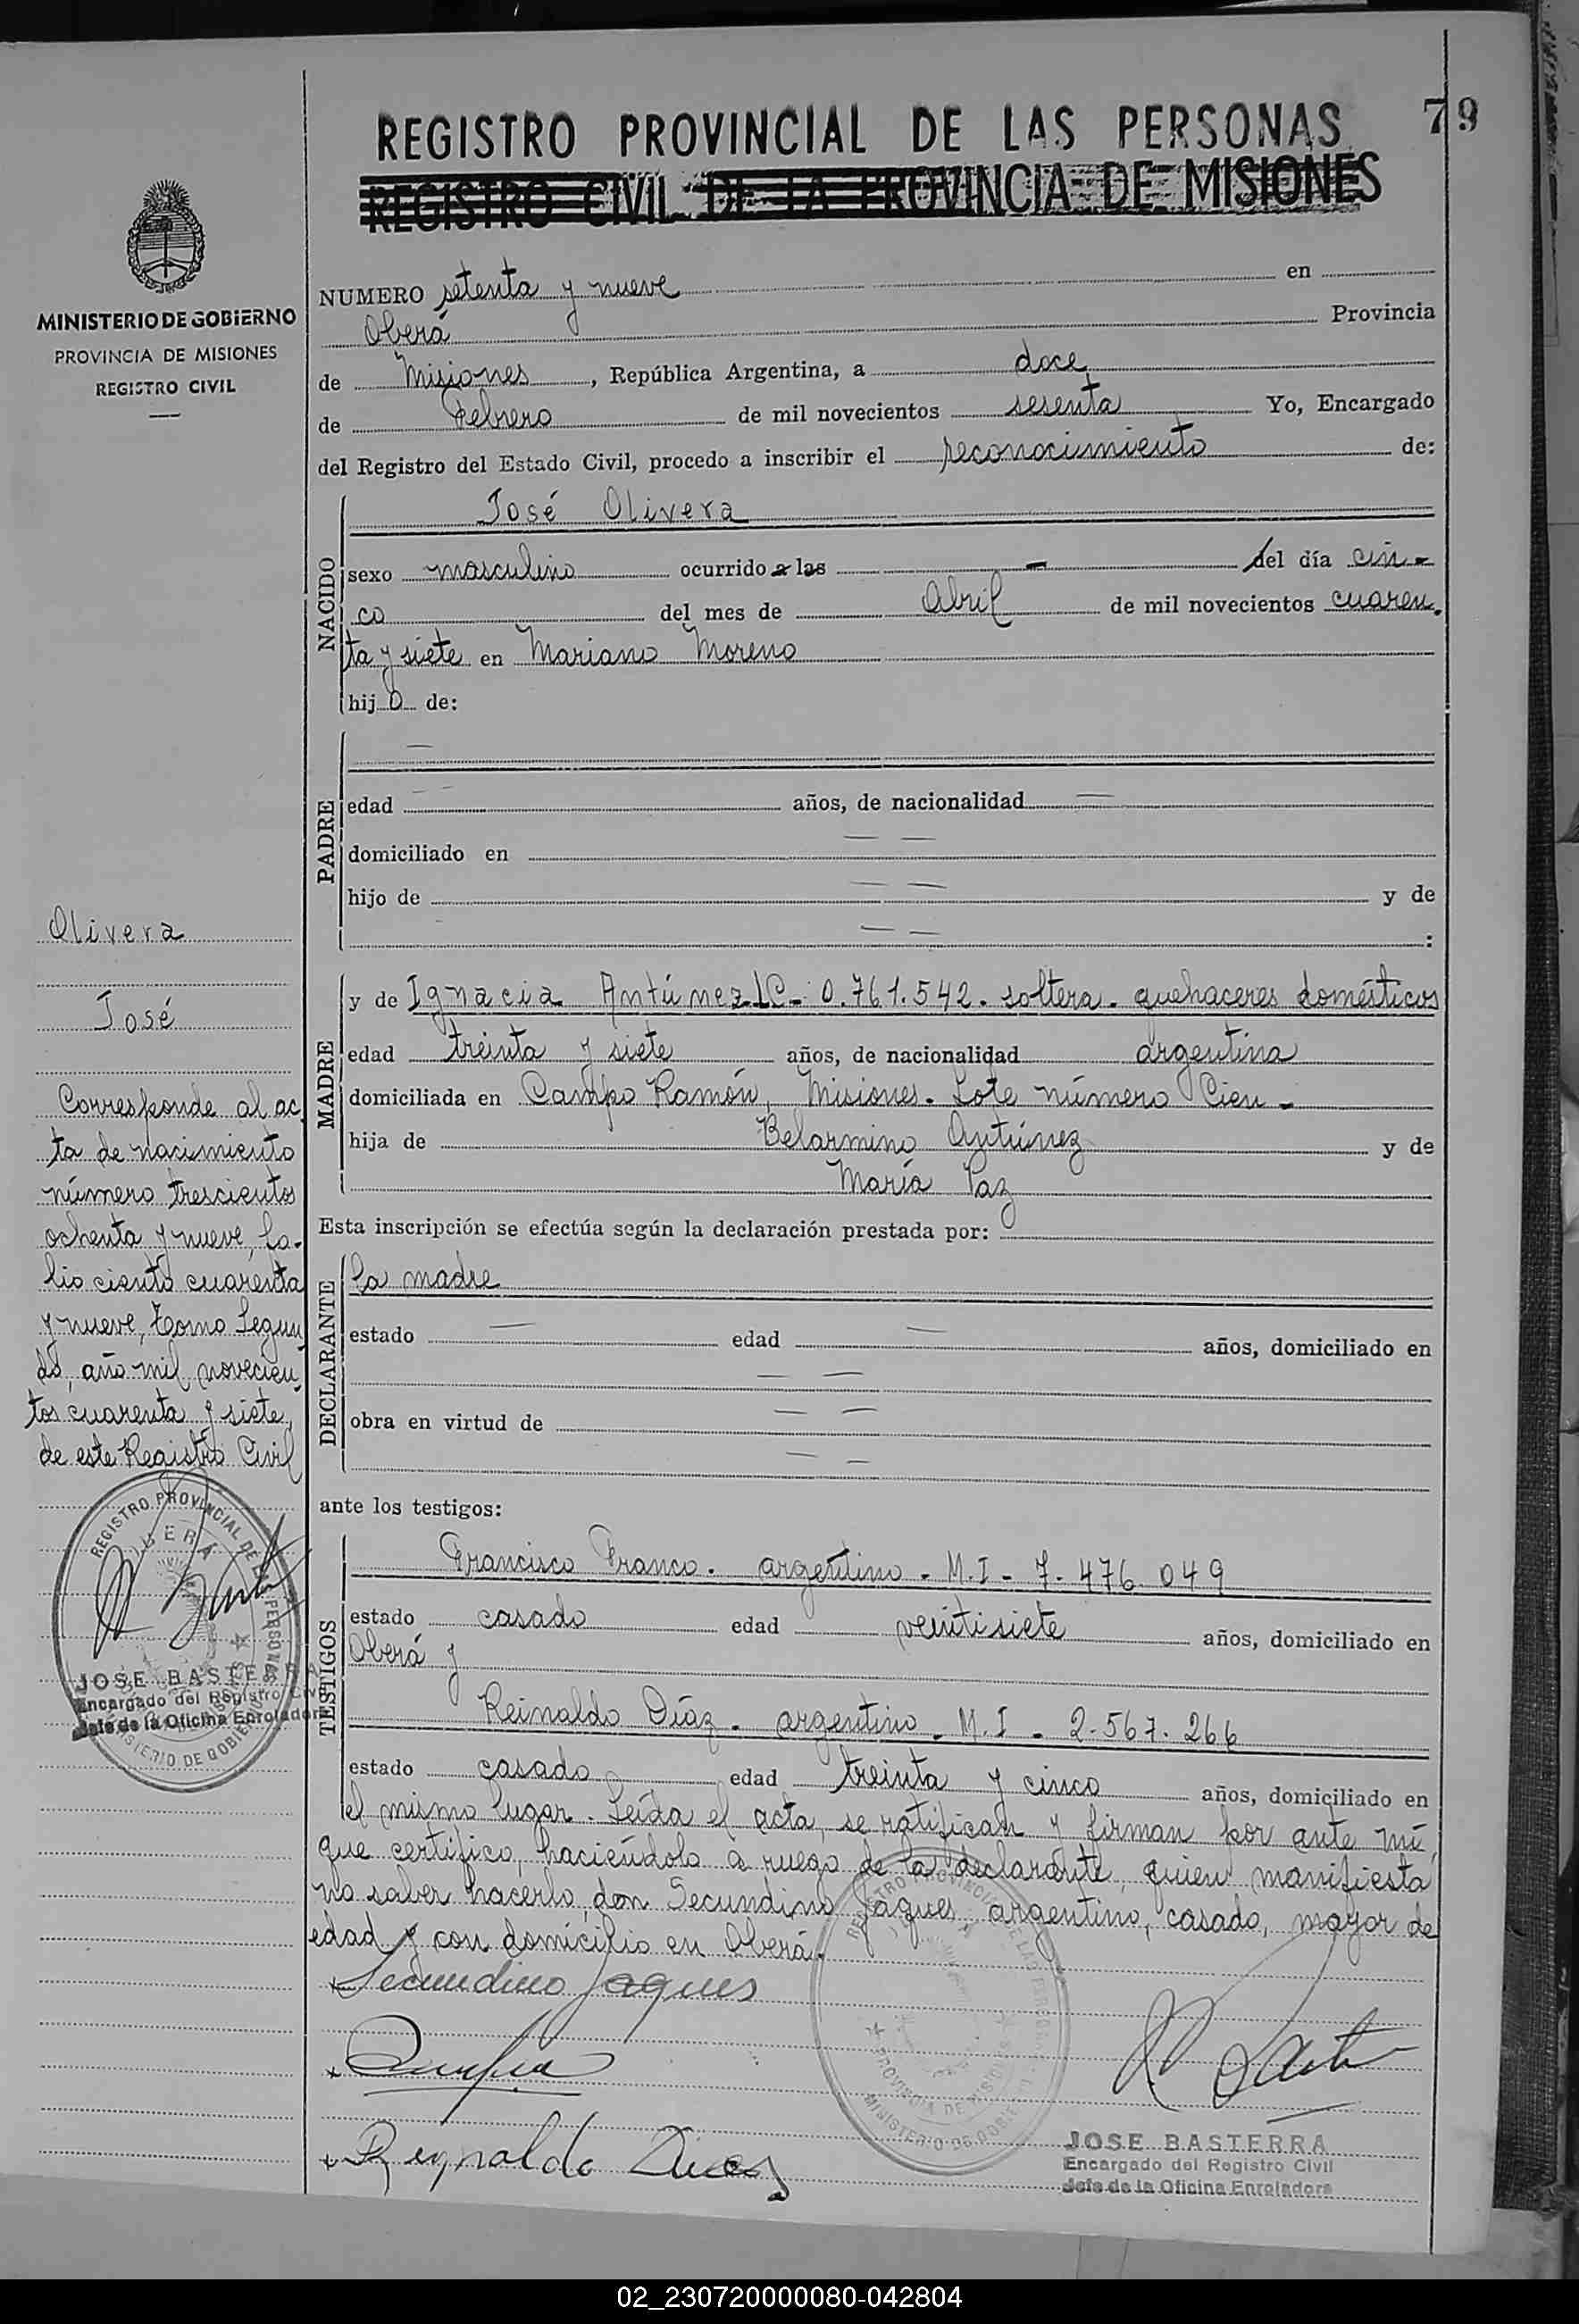 79
REGISTRO PROVINCIAL DE LAS PERSONAS
REGISTRO CIVIL DE LA PROVINCIA DE MISIONES
MINISTERIO DE GOBIERNO
PROVINCIA DE MISIONES
REGISTRO CIVIL
NUMERO setenta y nueve en
Oberá Provincia
de Misiones, República Argentina, a doce
de Febrero de mil novecientos sesenta Yo, Encargado
del Registro del Estado Civil, procedo a inscribir el reconocimiento de:
NACIDO
José Olivera
sexo masculino ocurrido a las - del día cin-
co del mes de Abril de mil novecientos cuaren-
ta y siete en Mariano Moreno
hijo de:
PADRE
—
edad — — años, de nacionalidad —
domiciliado en — —
hijo de — — y de
— — :
MADRE
y de Ignacia Antúnez LC- 0.761.542. soltera. quehaceres domésticos
edad treinta y siete años, de nacionalidad argentina
domiciliada en Campo Ramón, Misiones. Lote número Cien -
hija de Belarmino Antúnez y de
María Paz
Esta inscripción se efectúa según la declaración prestada por:
DECLARANTE
la madre
estado — edad — años, domiciliado en
— —
obra en virtud de — —
— —
ante los testigos:
TESTIGOS
Francisco Franco. argentino - M.I - 7.476.049
estado casado edad veintisiete años, domiciliado en
Oberá y
Reinaldo Díaz. argentino - M.I - 2.567.266
estado casado edad treinta y cinco años, domiciliado en
el mismo lugar. Leída el acta, se ratifican y firman por ante mí,
que certifico, haciéndolo a ruego de la declarante, quien manifiesta
no saber hacerlo, don Secundino Jaques, argentino, casado, mayor de
edad y con domicilio en Oberá.
Secundino Jaques
Reynaldo Diaz
JOSE BASTERRA
Encargado del Registro Civil
Jefe de la Oficina Enroladora
REGISTRO PROVINCIAL DE LAS PERSONAS
PROVINCIA DE MISIONES
MINISTERIO DE GOBIERNO
Olivera
José
Corresponde al ac
ta de nacimiento
número trescientos
ochenta y nueve, fo-
lio ciento cuarenta
y nueve, tomo Segun
do, año mil novecien
tos cuarenta y siete,
de este Registro Civil
REGISTRO PROVINCIAL DE LAS PERSONAS
OBERÁ
MISIONES
MINISTERIO DE GOBIERNO
JOSE BASTERRA
Encargado del Registro Civil
Jefe de la Oficina Enroladora
02_230720000080-042804